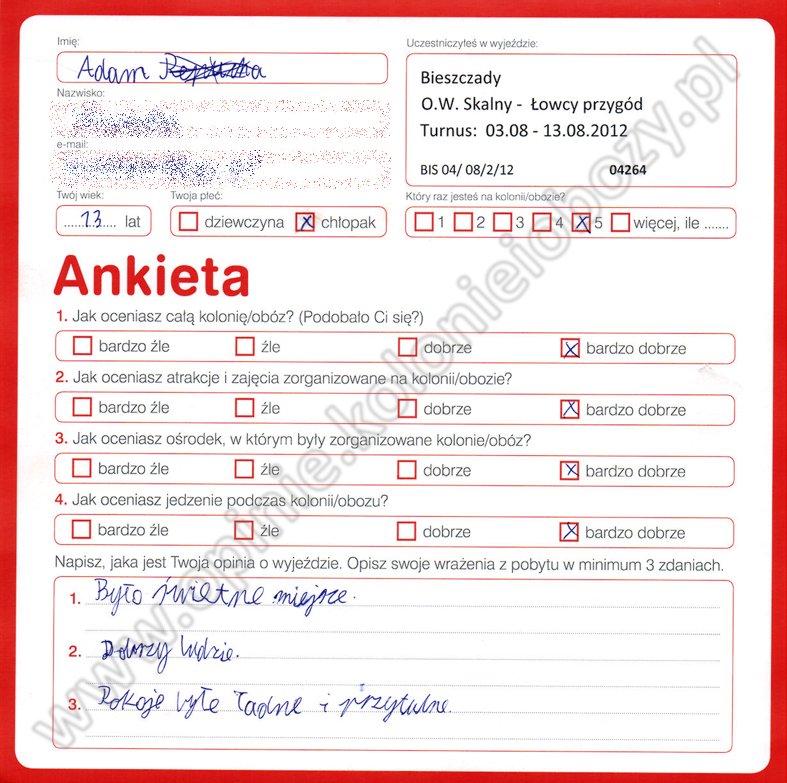 Imię:
Adam
Uczestniczyłeś w wyjeździe:
Bieszczady
O.W. Skalny - Łowcy przygód
Turnus: 03.08 - 13.08.2012
BIS 04/ 08/2/12 04264
Nazwisko:
e-mail:
Twój wiek:
13 lat
Twoja płeć:
dziewczyna chłopak
Który raz jesteś na kolonii/obozie?
1 2 3 4 5 więcej, ile .......
Ankieta
1. Jak oceniasz całą kolonię/obóz? (Podobało Ci się?)
bardzo źle źle dobrze bardzo dobrze
2. Jak oceniasz atrakcje i zajęcia zorganizowane na kolonii/obozie?
bardzo źle źle dobrze bardzo dobrze
3. Jak oceniasz ośrodek, w którym były zorganizowane kolonie/obóz?
bardzo źle źle dobrze bardzo dobrze
4. Jak oceniasz jedzenie podczas kolonii/obozu?
bardzo źle źle dobrze bardzo dobrze
Napisz, jaka jest Twoja opinia o wyjeździe. Opisz swoje wrażenia z pobytu w minimum 3 zdaniach.
1. Było świetne miejsce.
2. Dobrzy ludzie.
3. Pokoje byłe ładne i przytulne.
www.opinie.kolonieiobozy.pl